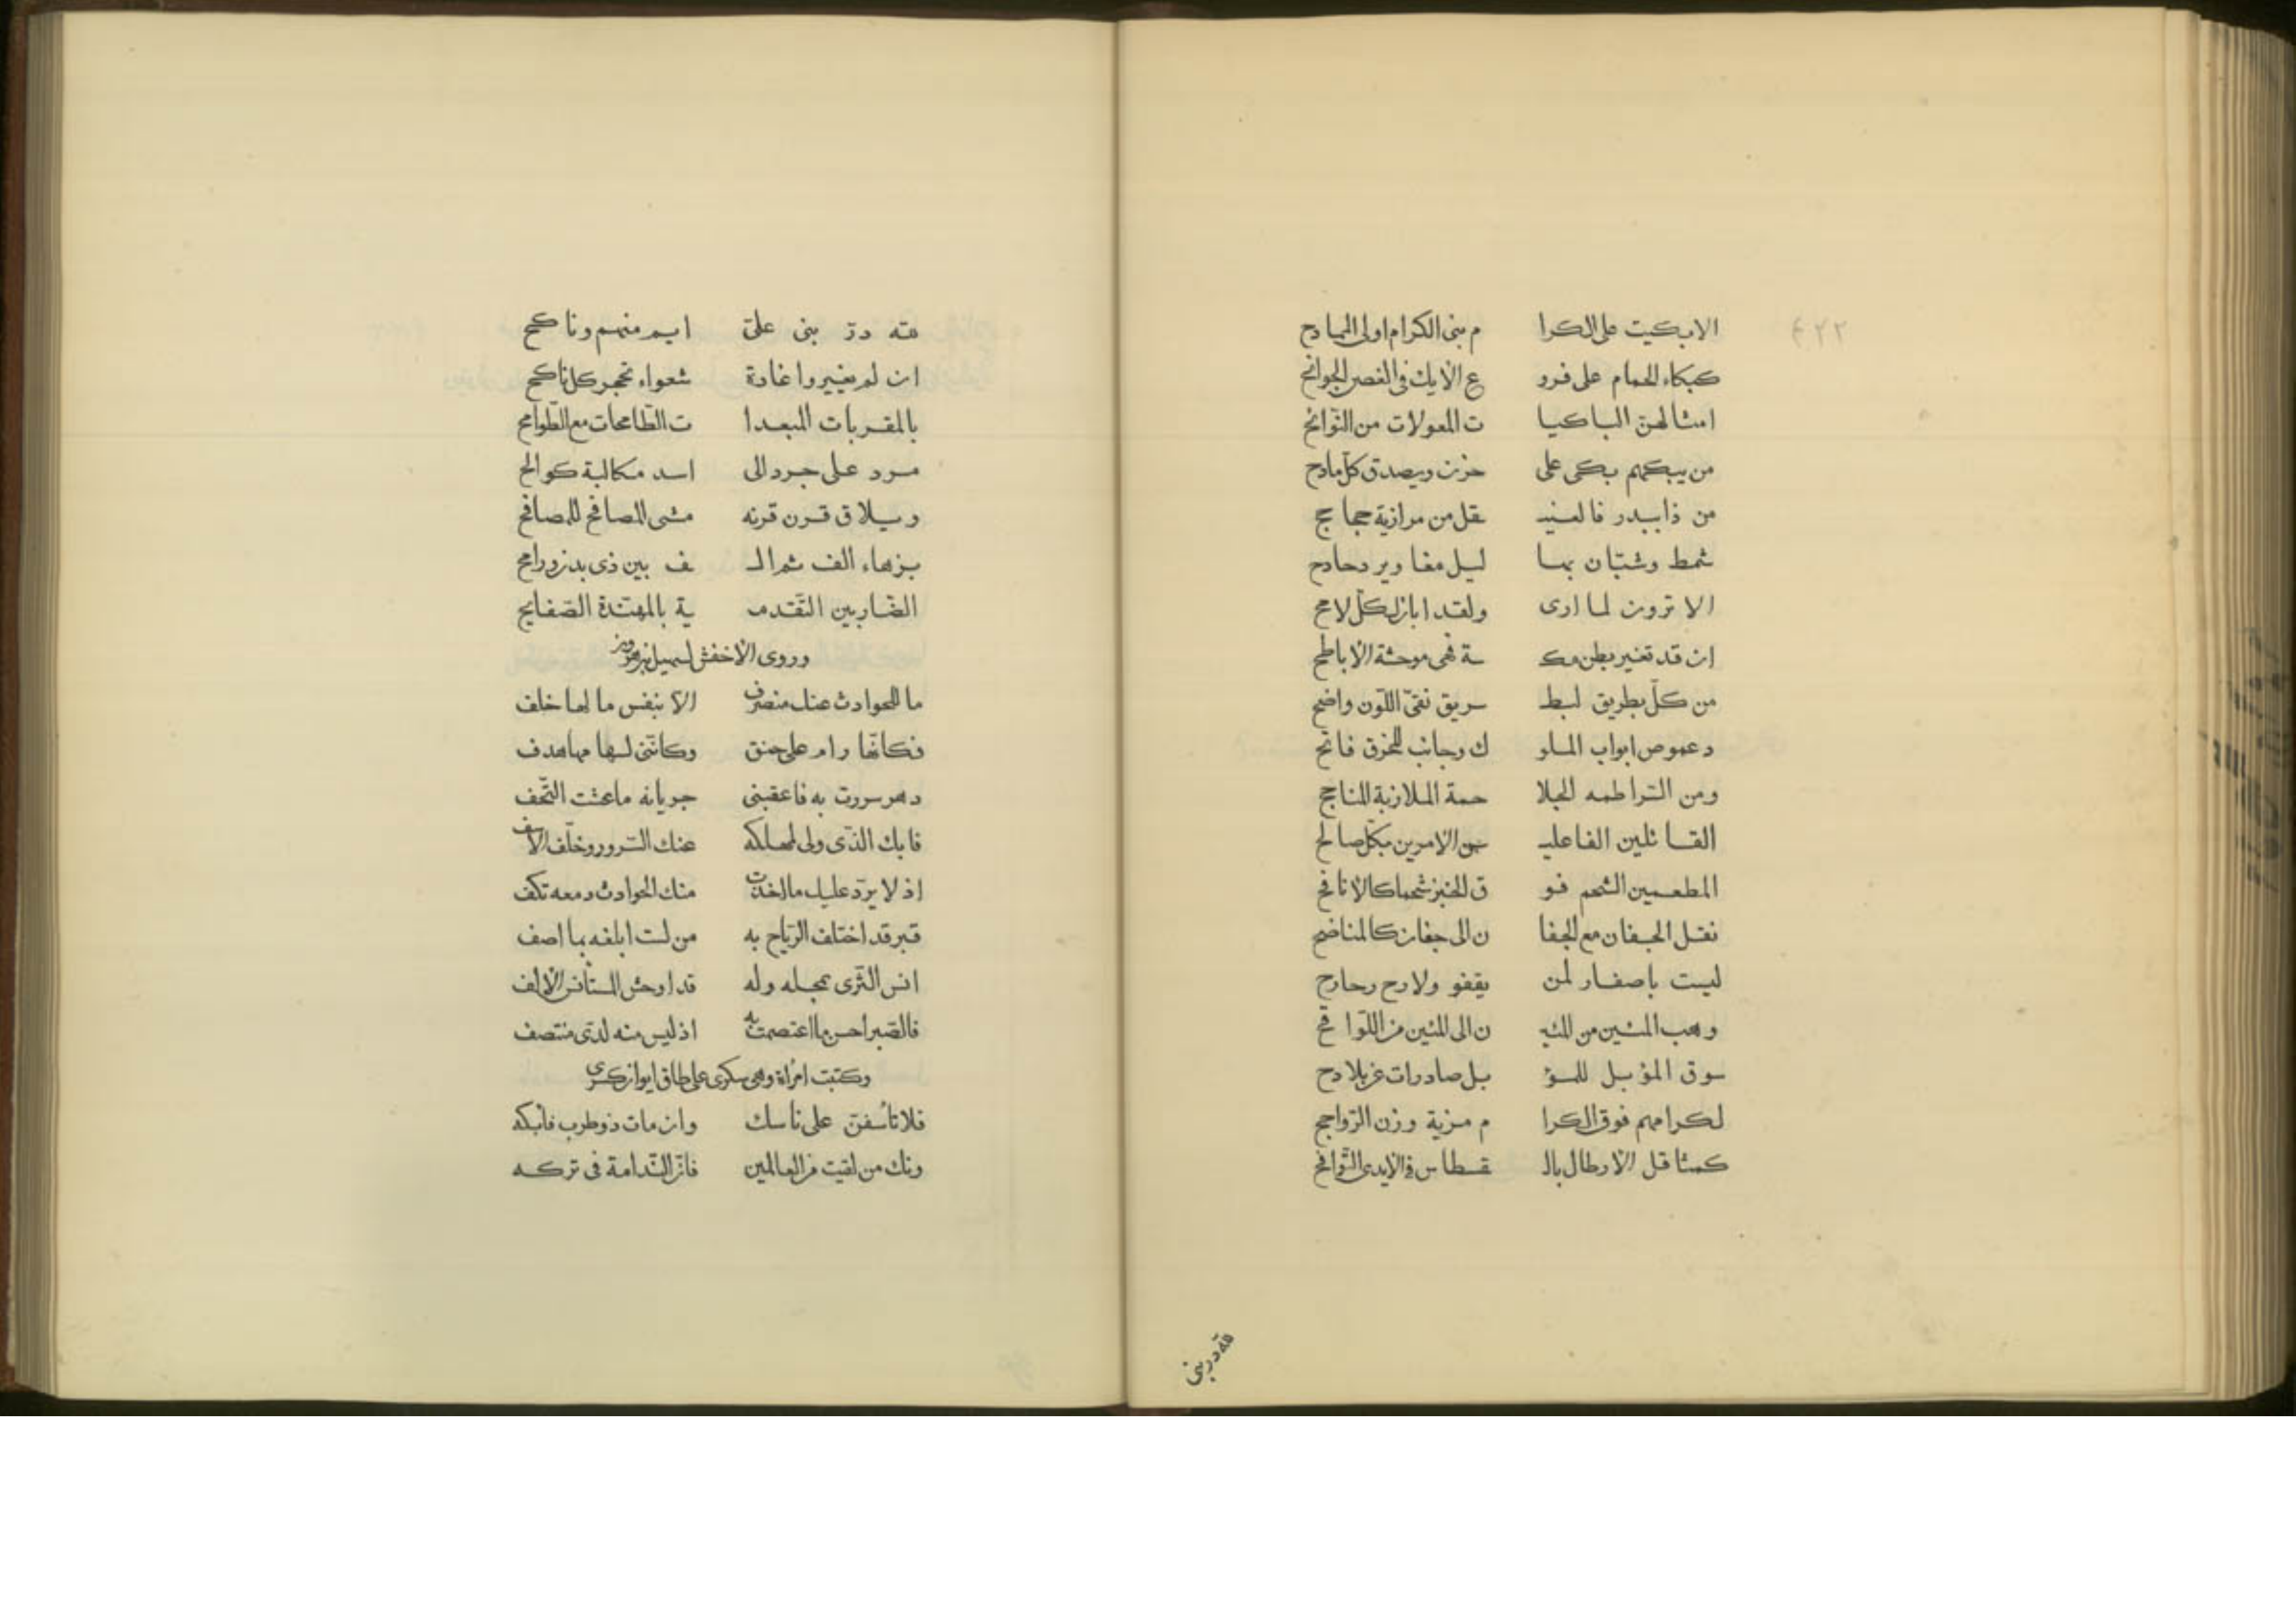 الابكيت على الكرا م بنى الكرام اولى الممادح
كبكاء الحمام على فرو ع الايك فى الغصن الجوانح
امثالهن الباكيا ت المعولات من النوائح
من يبكهم يبكى على حزن ويصدق كل مادح
من ذا ببدر فالعنـ ـقل من مرازبة ججاجح
شمط وشبان بها ليل مغاوير دحادح
الا ترون لما ارى ولقد ابان لكل لامح
ان قد تغير بطن مكـ ـة فهى موحشة الاباطح
من كل بطريق لبطـ ـريق نقى اللون واضح
دعموص ابواب الملو ك وجائب للخرق فاتح
ومن السراطمة الجلا حمة الملازبة المناجح
القائلين الفاعليـ ـن الامرين بكل صالح
المطعمين الشحم فو ق الخبز شحما كالانافح
نقل الجفان مع الجفا ن الى جفان كالمناضح
ليست باصفار لمن يقفو ولا رح رحارح
وهب المئين من المئيـ ن الى المئين من اللواقح
سوق المؤبل للمؤ بل صادرات عن بلادح
لكرامهم فوق الكرا م مزية وزن الرواجح
كمثاقل الارطال بالـ ـقسطاس فى الايدى النوافح
٤٢٢
لله در بنى
لله در بنى على ايم منهم وناكح
ان لم يغيروا غارة شعواء تحجر كل ناكح
بالمقربات المبعدا ت الطامحات مع الطوامح
مرد على جرد الى اسد مكالبة كوالح
ويلاق قرن قرنه مشى المصافح للمصافح
بزهاء الف ثم الـ ـف بين ذى بدن ورامح
الضاربين التقدمـ ـية بالمهندة الصفايح
وروى الاخفش لسهيل بن هرون
ما للحوادث عنك منصرف الا بنفس ما لها خلف
فكانها رام على حنق وكاننى لسهامها هدف
دهر سررت به فاعقبنى جريانه ما عشت التحف
فابك الذى ولى لمهلكه عنك السرور وخلف الاسف
اذ لا يرد عليك ما اخذت منك الحوادث دمعه تكف
قبر قد اختلف الرياح به من لست ابلغه بما اصف
انس الثرى بمحله وله قد اوحش المستانس الالف
فالصبر احسن ما اعتصمت به اذ ليس منه لدى منتصف
وكتبت امراة وهى سكرى على طاق ايوان كسرى
فلا تأسفن على ناسك وان مات ذو طرب فابكه
ونك من لقيت من العالمين فان الندامة فى تركه